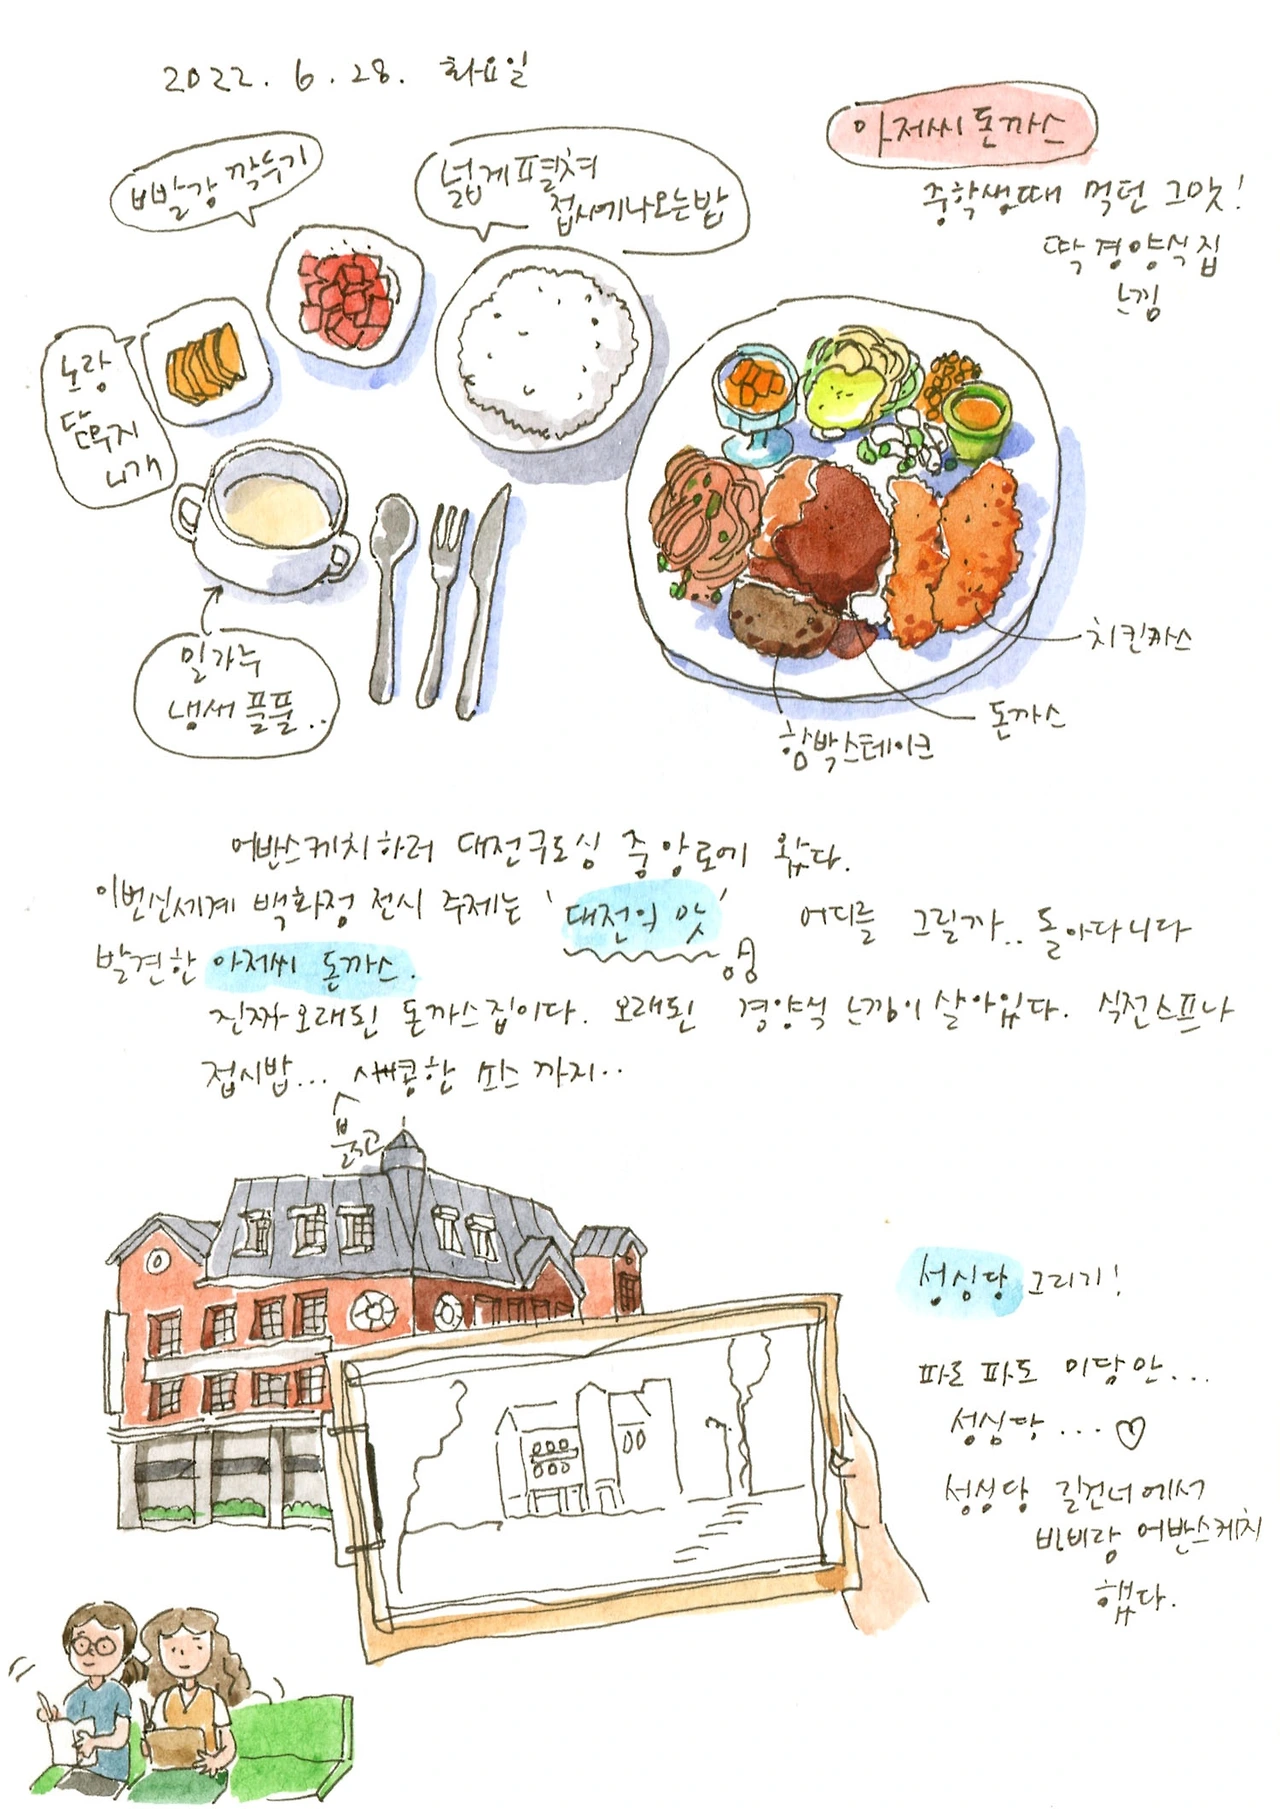 2022. 6. 28. 화요일
아저씨 돈까스
중학생때 먹던 그맛!
딱 경양식집
느낌
빠알강 깍두기
넓게 펼쳐
접시에 나오는 밥
노랑
단무지
4개
밀가루
냄새 풀풀..
치킨까스
돈까스
함박스테이크
어반스케치하러 대전구도심 중앙로에 왔다.
이번 신세계 백화점 전시 주제는 '대전의 맛' 어디를 그릴까.. 돌아다니다
발견한 아저씨 돈까스.
진짜 오래된 돈까스집이다. 오래된 경양식 느낌이 살아있다. 식전스프나
접시밥... 새콤한 쏘스 까지..
붉고
성심당 그리기!
파르 파도 미담만...
성심당 ... ♡
성심당 길건너에서
비비랑 어반스케치
했다.